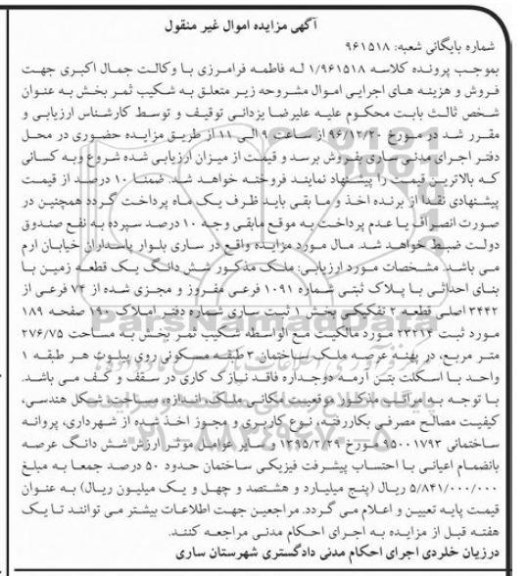 آگهی مزایده اموال غیر منقول
شماره بایگانی شعبه: ۹۶۱۵۱۸
بموجب پرونده کلاسه ۱/۹۶۱۵۱۸ له فاطمه فرامرزی با وکالت جمال اکبری جهت
فروش و هزینه های اجرایی اموال مشروحه زیر متعلق به شکیب ثمر بخش به عنوان
شخص ثالث بابت محکوم علیه علیرضا یزدانی توقیف و توسط کارشناس ارزیابی و
مقرر شد در مورخ ۹۶/۱۲/۲۰ از ساعت ۹ الی ۱۱ از طریق مزایده حضوری در محل
دفتر اجرای مدنی ساری بفروش برسد و قیمت از میزان ارزیابی شده شروع وبه کسانی
که بالاترین قیمت را پیشنهاد نمایند فروخته خواهد شد. ضمنا ۱۰ درصد از قیمت
پیشنهادی نقدا از برنده اخذ و ما بقی باید ظرف یک ماه پرداخت گردد همچنین در
صورت انصراف یا عدم پرداخت به موقع مابقی وجه ۱۰ درصد سپرده به نفع صندوق
دولت ضبط خواهد شد. مال مورد مزایده واقع در ساری بلوار پاسداران خیابان ارم
می باشد. مشخصات مورد ارزیابی: ملک مذکور شش دانگ یک قطعه زمین با
بنای احداثی با پلاک ثبتی شماره ۱۰۹۱ فرعی مفروز و مجزی شده از ۷۴ فرعی از
۲۴۴۲ اصلی قطعه ۲ تفکیکی بخش ۱ ثبت ساری شماره دفتر املاک ۱۹۰ صفحه ۱۸۹
مورد ثبت ۲۳۲۱۶ مورد مالکیت مع الواسطه شکیب ثمر بخش به مساحت ۲۷۶/۷۵
متر مربع، در پهنه عرصه ملک ساختمان ۳ طبقه مسکونی روی پیلوت هر طبقه ۱
واحد با اسکلت بتن آرمه دوجداره فاقد نازک کاری در سقف و کف می باشد.
با توجه به مراتب مذکور موقعیت مکانی ملک، اندازه، مساحت، شکل هندسی،
کیفیت مصالح مصرفی بکاررفته، نوع کاربری و مجوز اخذ شده از شهرداری، پروانه
ساختمانی ۹۵۰۰۱۷۹۳ مورخ ۱۳۹۵/۲/۲۹ و سایر عوامل موثر ارزش شش دانگ عرصه
بانضمام اعیانی با احتساب پیشرفت فیزیکی ساختمان حدود ۵۰ درصد جمعا به مبلغ
۵/۸۴۱/۰۰۰/۰۰۰ ریال (پنج میلیارد و هشتصد و چهل و یک میلیون ریال) به عنوان
قیمت پایه تعیین و اعلام می گردد. مراجعین جهت اطلاعات بیشتر می توانند تا یک
هفته قبل از مزایده به اجرای احکام مدنی مراجعه کنند.
درزیان خلردی اجرای احکام مدنی دادگستری شهرستان ساری